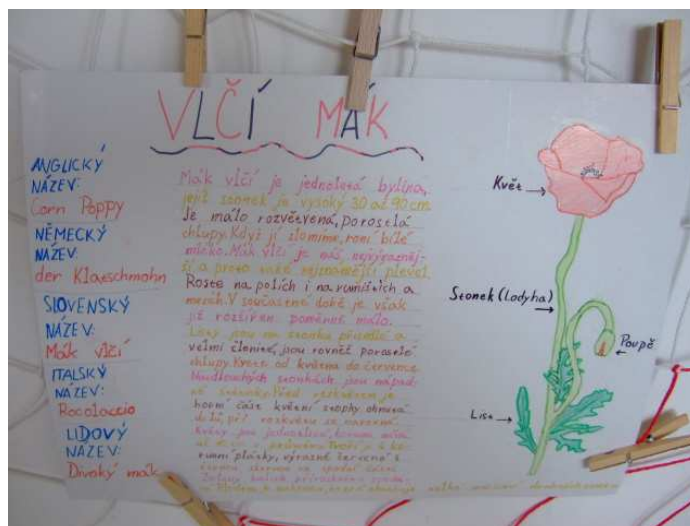 VLČÍ MÁK
ANGLICKÝ
NÁZEV:
Corn Poppy
NĚMECKÝ
NÁZEV:
der Klatschmohn
SLOVENSKÝ
NÁZEV:
Mák vlčí
ITALSKÝ
NÁZEV:
Rocolaccio
LIDOVÝ
NÁZEV:
Divoký mák
Mák vlčí je jednoletá bylina,
jejíž stonek je vysoký 30 až 90 cm.
Je málo rozvětvená, porostlá
chlupy. Když jí zlomíme, roní bílé
mléko. Mák vlčí je náš nejvýrazněj-
ší a proto také nejznámější plevel.
Roste na polích i na rumištích a
mezích. V současné době je však
již rozšířen poměrně málo.
Listy jsou na stonku přisedlé a
velmi členité, jsou rovněž porostlé
chlupy. Kvete od května do července.
Na dlouhých stonkách jsou nápad-
né Před rozkvětem je
horní část květní stopky ohnutá
dolů, při rozkvětu se napřímí.
Květy jsou
runní plátky, výrazně červené s
Květ
Stonek (Lodyha)
Poupě
List